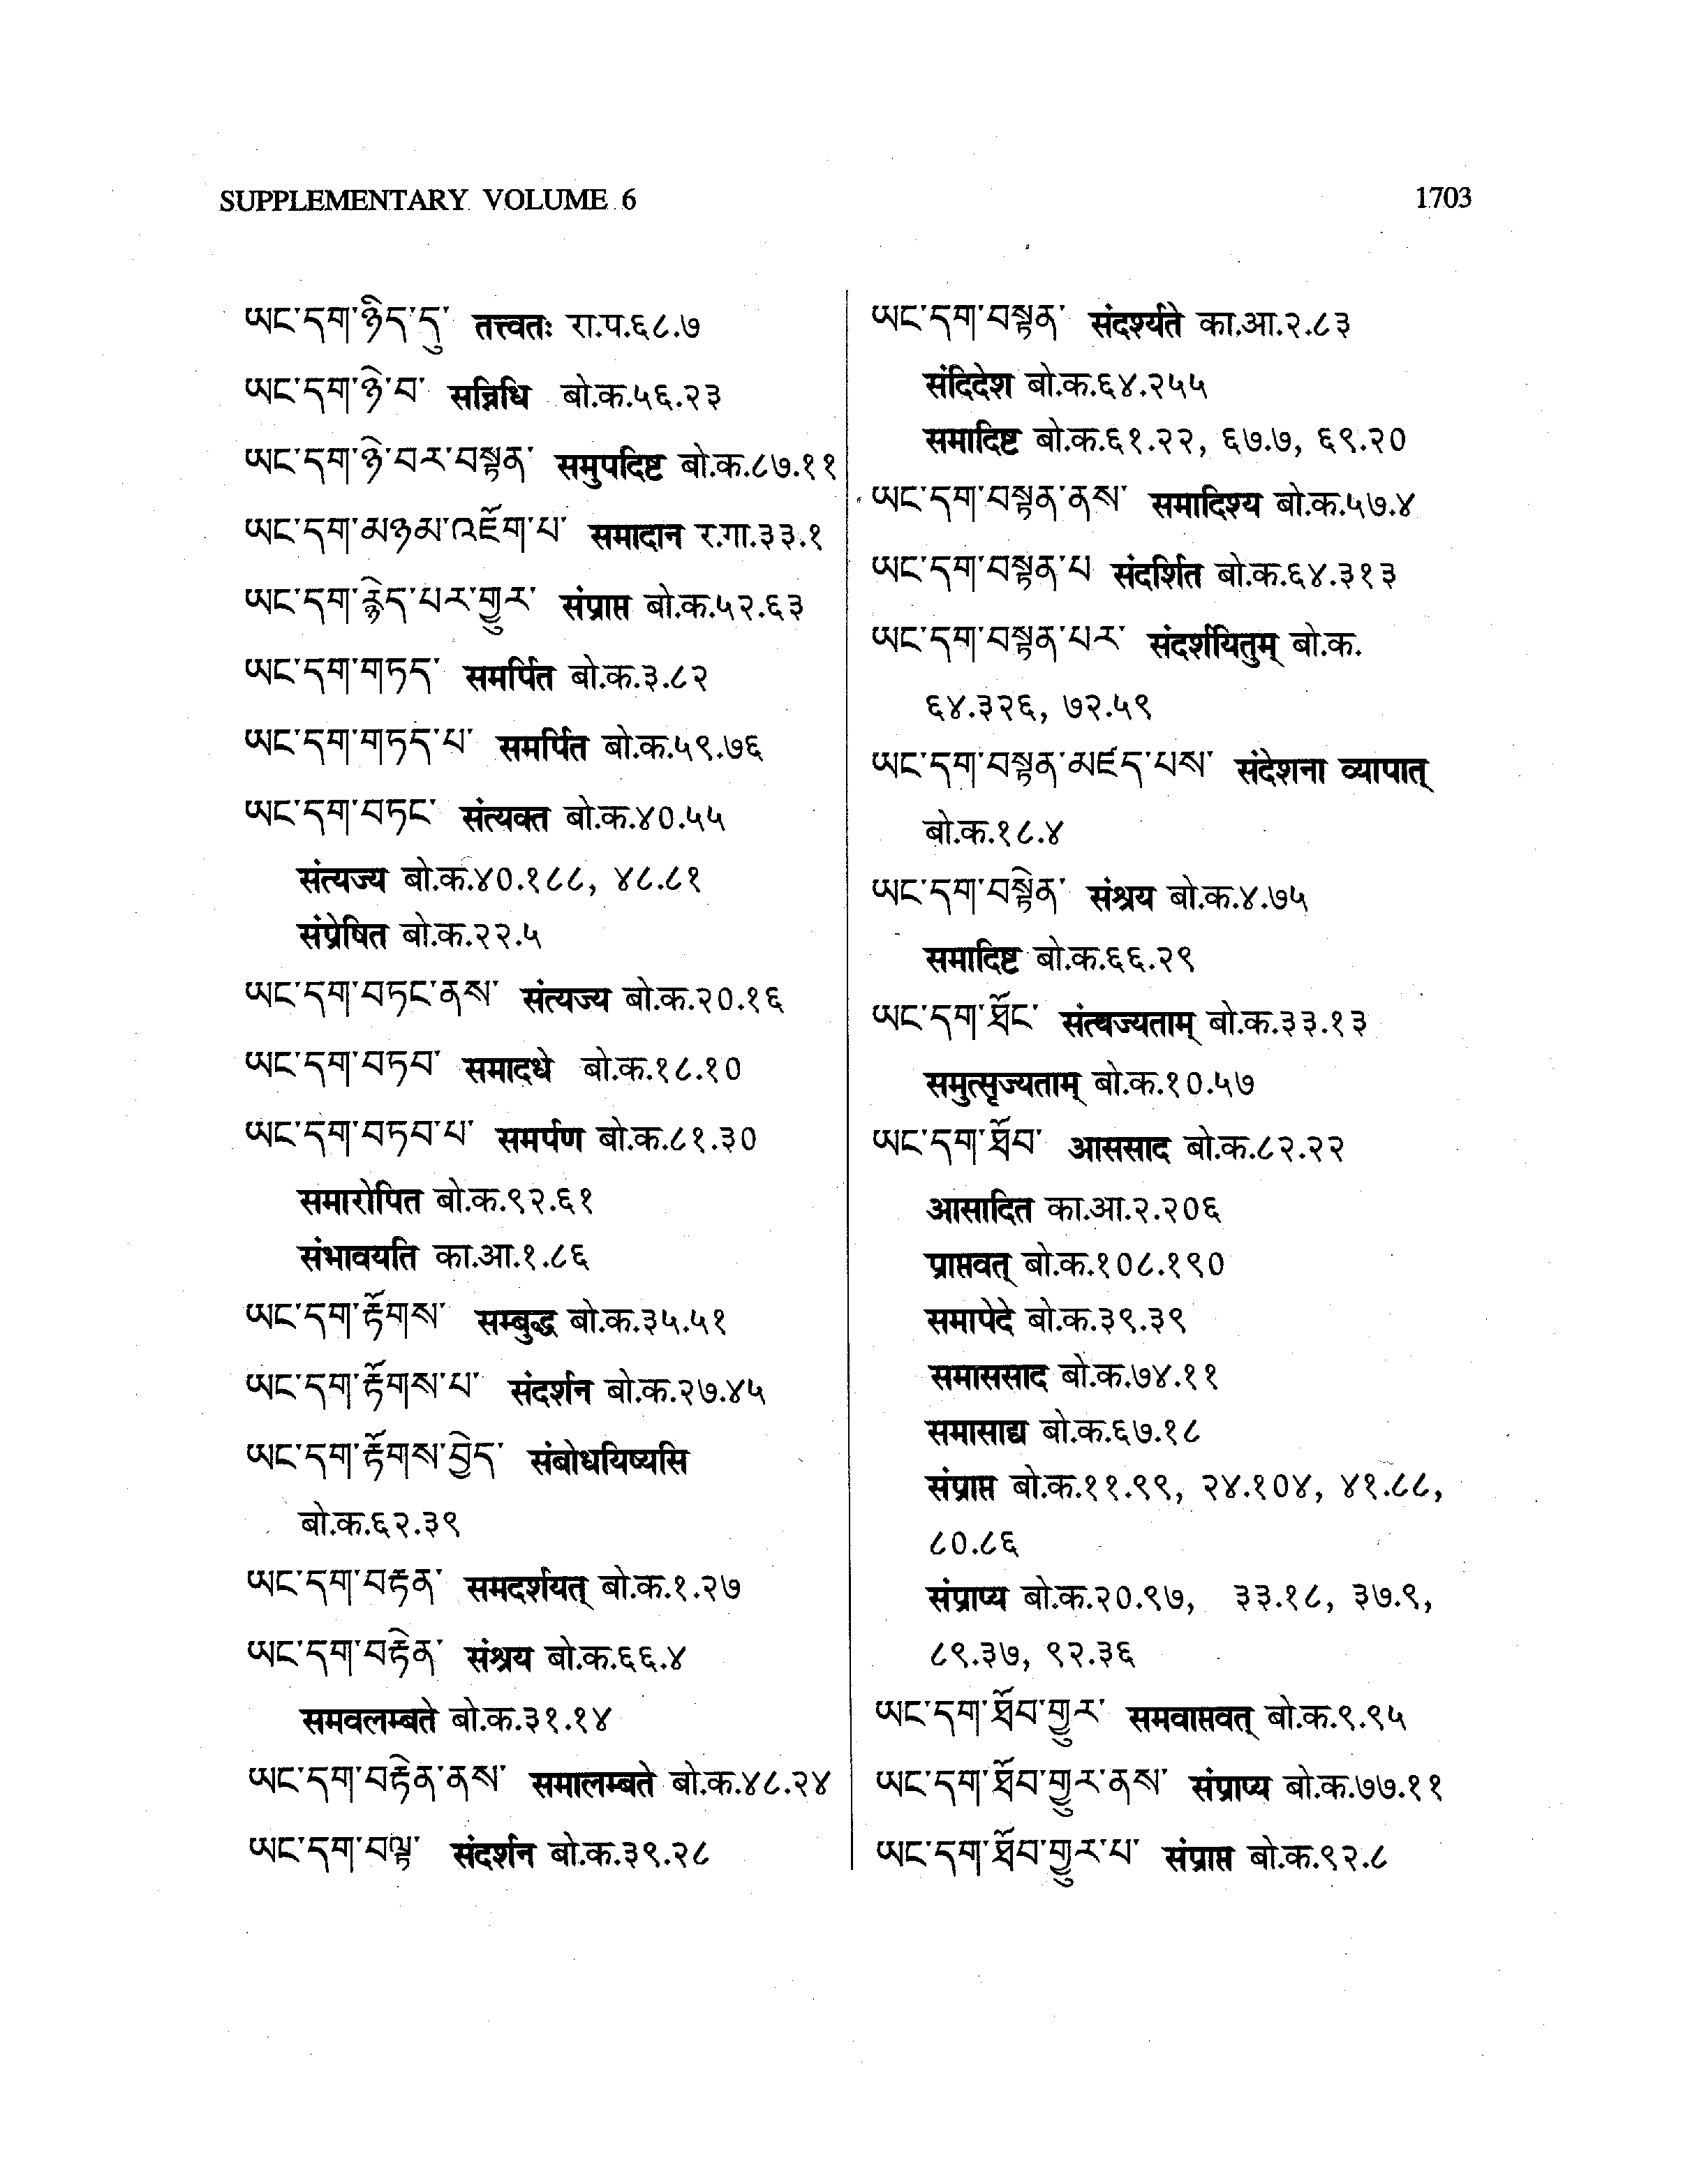 SUPPLEMENTARY VOLUME 6
1703
ཡང་དག་ཉིད་དུ་ तत्त्वतः रा.प.६८.७
ཡང་དག་ཉེ་བ་ सन्निधि बो.क.५६.२३
ཡང་དག་ཉེ་བར་བསྟན་ समुपदिष्ट बो.क.८७.११
ཡང་དག་མཉམ་འཇོག་པ་ समादान र.गा.३३.१
ཡང་དག་རྙེད་པར་གྱུར་ संप्राप्त बो.क.५२.६३
ཡང་དག་གཏད་ समर्पित बो.क.३.८२
ཡང་དག་གཏད་པ་ समर्पित बो.क.५९.७६
ཡང་དག་བཏང་ संत्यक्त बो.क.४०.५५
संत्यज्य बो.क.४०.१८८, ४८.८१
संप्रेषित बो.क.२२.५
ཡང་དག་བཏང་ནས་ संत्यज्य बो.क.२०.१६
ཡང་དག་བཏབ་ समादधे बो.क.१८.१०
ཡང་དག་བཏབ་པ་ समर्पण बो.क.८१.३०
समारोपित बो.क.९२.६१
संभावयति का.आ.१.८६
ཡང་དག་རྟོགས་ सम्बुद्ध बो.क.३५.५१
ཡང་དག་རྟོགས་པ་ संदर्शन बो.क.२७.४५
ཡང་དག་རྟོགས་བྱེད་ संबोधयिष्यसि
बो.क.६२.३९
ཡང་དག་བརྟན་ समदर्शयत् बो.क.१.२७
ཡང་དག་བརྟེན་ संश्रय बो.क.६६.४
समवलम्बते बो.क.३१.१४
ཡང་དག་བརྟེན་ནས་ समालम्बते बो.क.४८.२४
ཡང་དག་བལྟ་ संदर्शन बो.क.३९.२८
ཡང་དག་བསྟན་ संदर्श्यते का.आ.२.८३
संदिदेश बो.क.६४.२५५
समादिष्ट बो.क.६१.२२, ६७.७, ६९.२०
ཡང་དག་བསྟན་ནས་ समादिश्य बो.क.५७.४
ཡང་དག་བསྟན་པ संदर्शित बो.क.६४.३१३
ཡང་དག་བསྟན་པར་ संदर्शयितुम् बो.क.
६४.३२६, ७२.५९
ཡང་དག་བསྟན་མཛད་པས་ संदेशना व्यापात्
बो.क.१८.४
ཡང་དག་བསྟེན་ संश्रय बो.क.४.७५
समादिष्ट बो.क.६६.२९
ཡང་དག་ཐོང་ संत्यज्यताम् बो.क.३३.१३
समुत्सृज्यताम् बो.क.१०.५७
ཡང་དག་ཐོབ་ आससाद बो.क.८२.२२
आसादित का.आ.२.२०६
प्राप्तवत् बो.क.१०८.१९०
समापेदे बो.क.३९.३९
समाससाद बो.क.७४.११
समासाद्य बो.क.६७.१८
संप्राप्त बो.क.११.९९, २४.१०४, ४१.८८,
८०.८६
संप्राप्य बो.क.२०.९७, ३३.१८, ३७.९,
८९.३७, ९२.३६
ཡང་དག་ཐོབ་གྱུར་ समवाप्तवत् बो.क.९.९५
ཡང་དག་ཐོབ་གྱུར་ནས་ संप्राप्य बो.क.७७.११
ཡང་དག་ཐོབ་གྱུར་པ་ संप्राप्त बो.क.९२.८